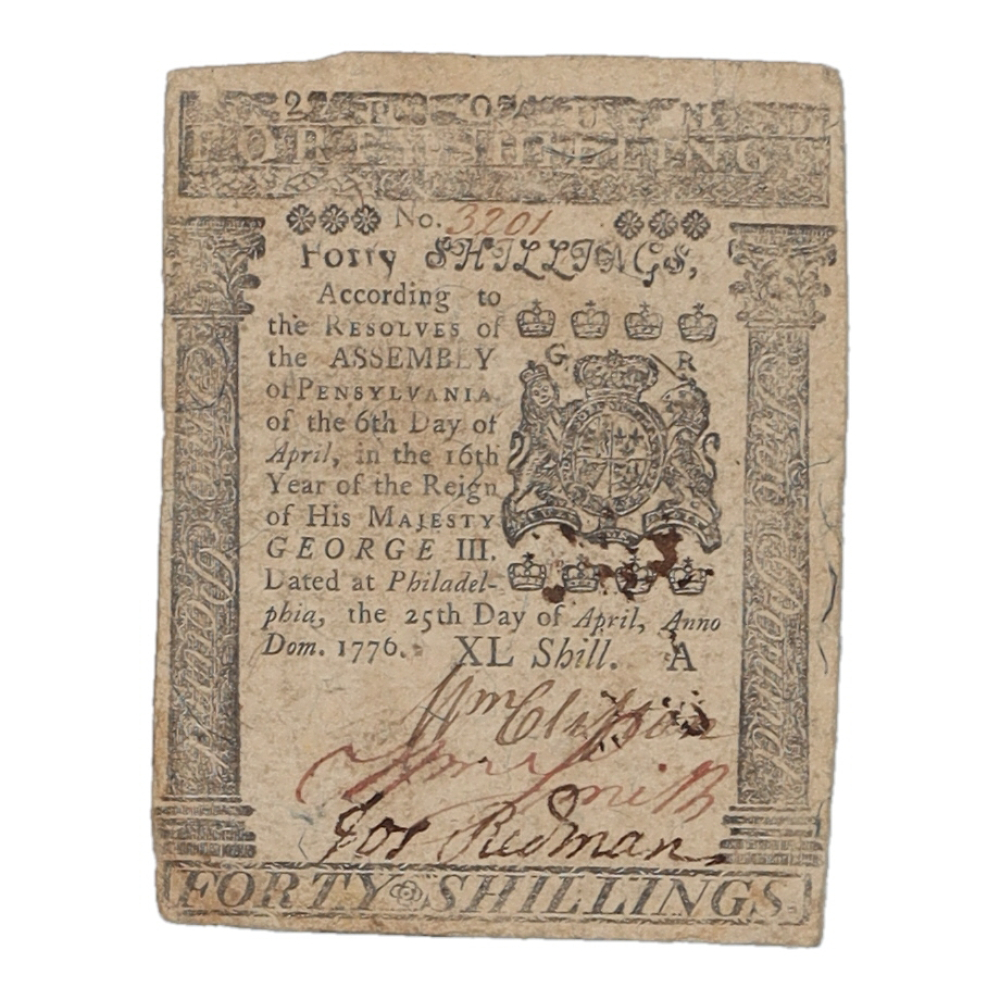 2 P O U N D
FORTY SHILLINGS
No. 3201
Forty SHILLINGS,
According to
the RESOLVES of
the ASSEMBLY
of PENSYLVANIA
of the 6th Day of
April, in the 16th
Year of the Reign
of His MAJESTY
GEORGE III.
Dated at Philadel-
phia, the 25th Day of April, Anno
Dom. 1776. XL Shill. A
G R
One Pound
One Pound
Wm Clifton
Wm Smith
Jos Redman
FORTY SHILLINGS.